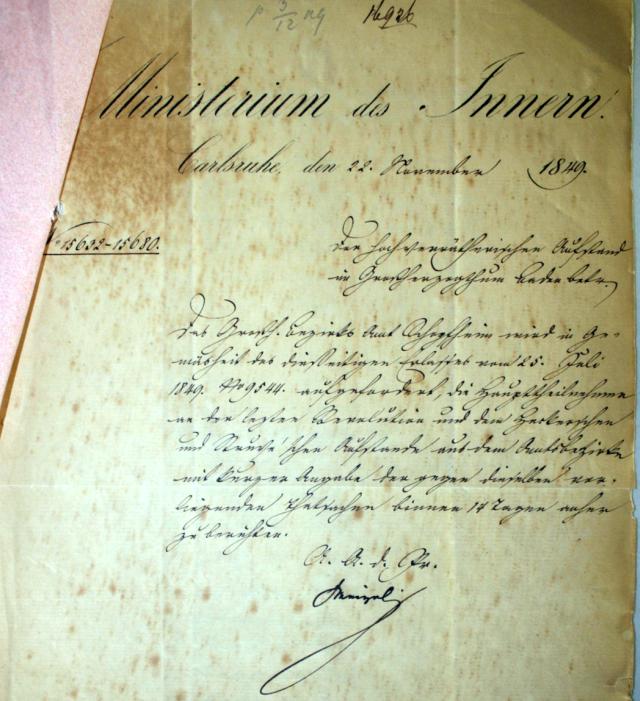 16926
Ministerium des Innern.
Carlsruhe, den 22. November 1849.
No 15632-15680.
Den hochverrätherischen Aufstand
im Großherzogthum Baden betr.
Das Großh. Bezirks Amt Schopfheim wird in Ge-
mäsheit des diesseitigen Erlasses vom 25. Juli
1849. No 9544. aufgefordert, die Haupttheilnehmer
an der lezten Revolution und dem Heckerschen
und Struve'schen Aufstande aus dem Amtsbezirke
mit kurzer Angabe der gegen dieselben vor-
liegenden Thatsachen binnen 14 Tagen anher
zu berichten.
A. A. d. Pr.